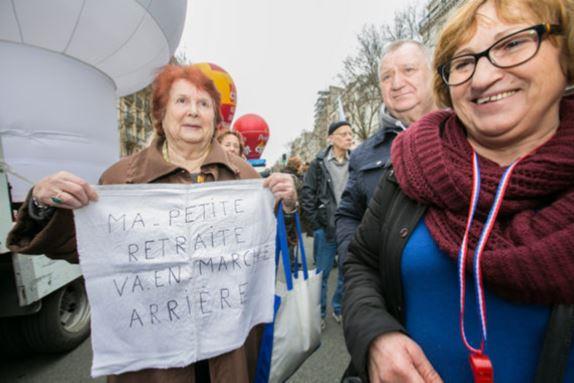 MA-PETITE
RETRAITE
VA.EN MARCHE
ARRIÈRE